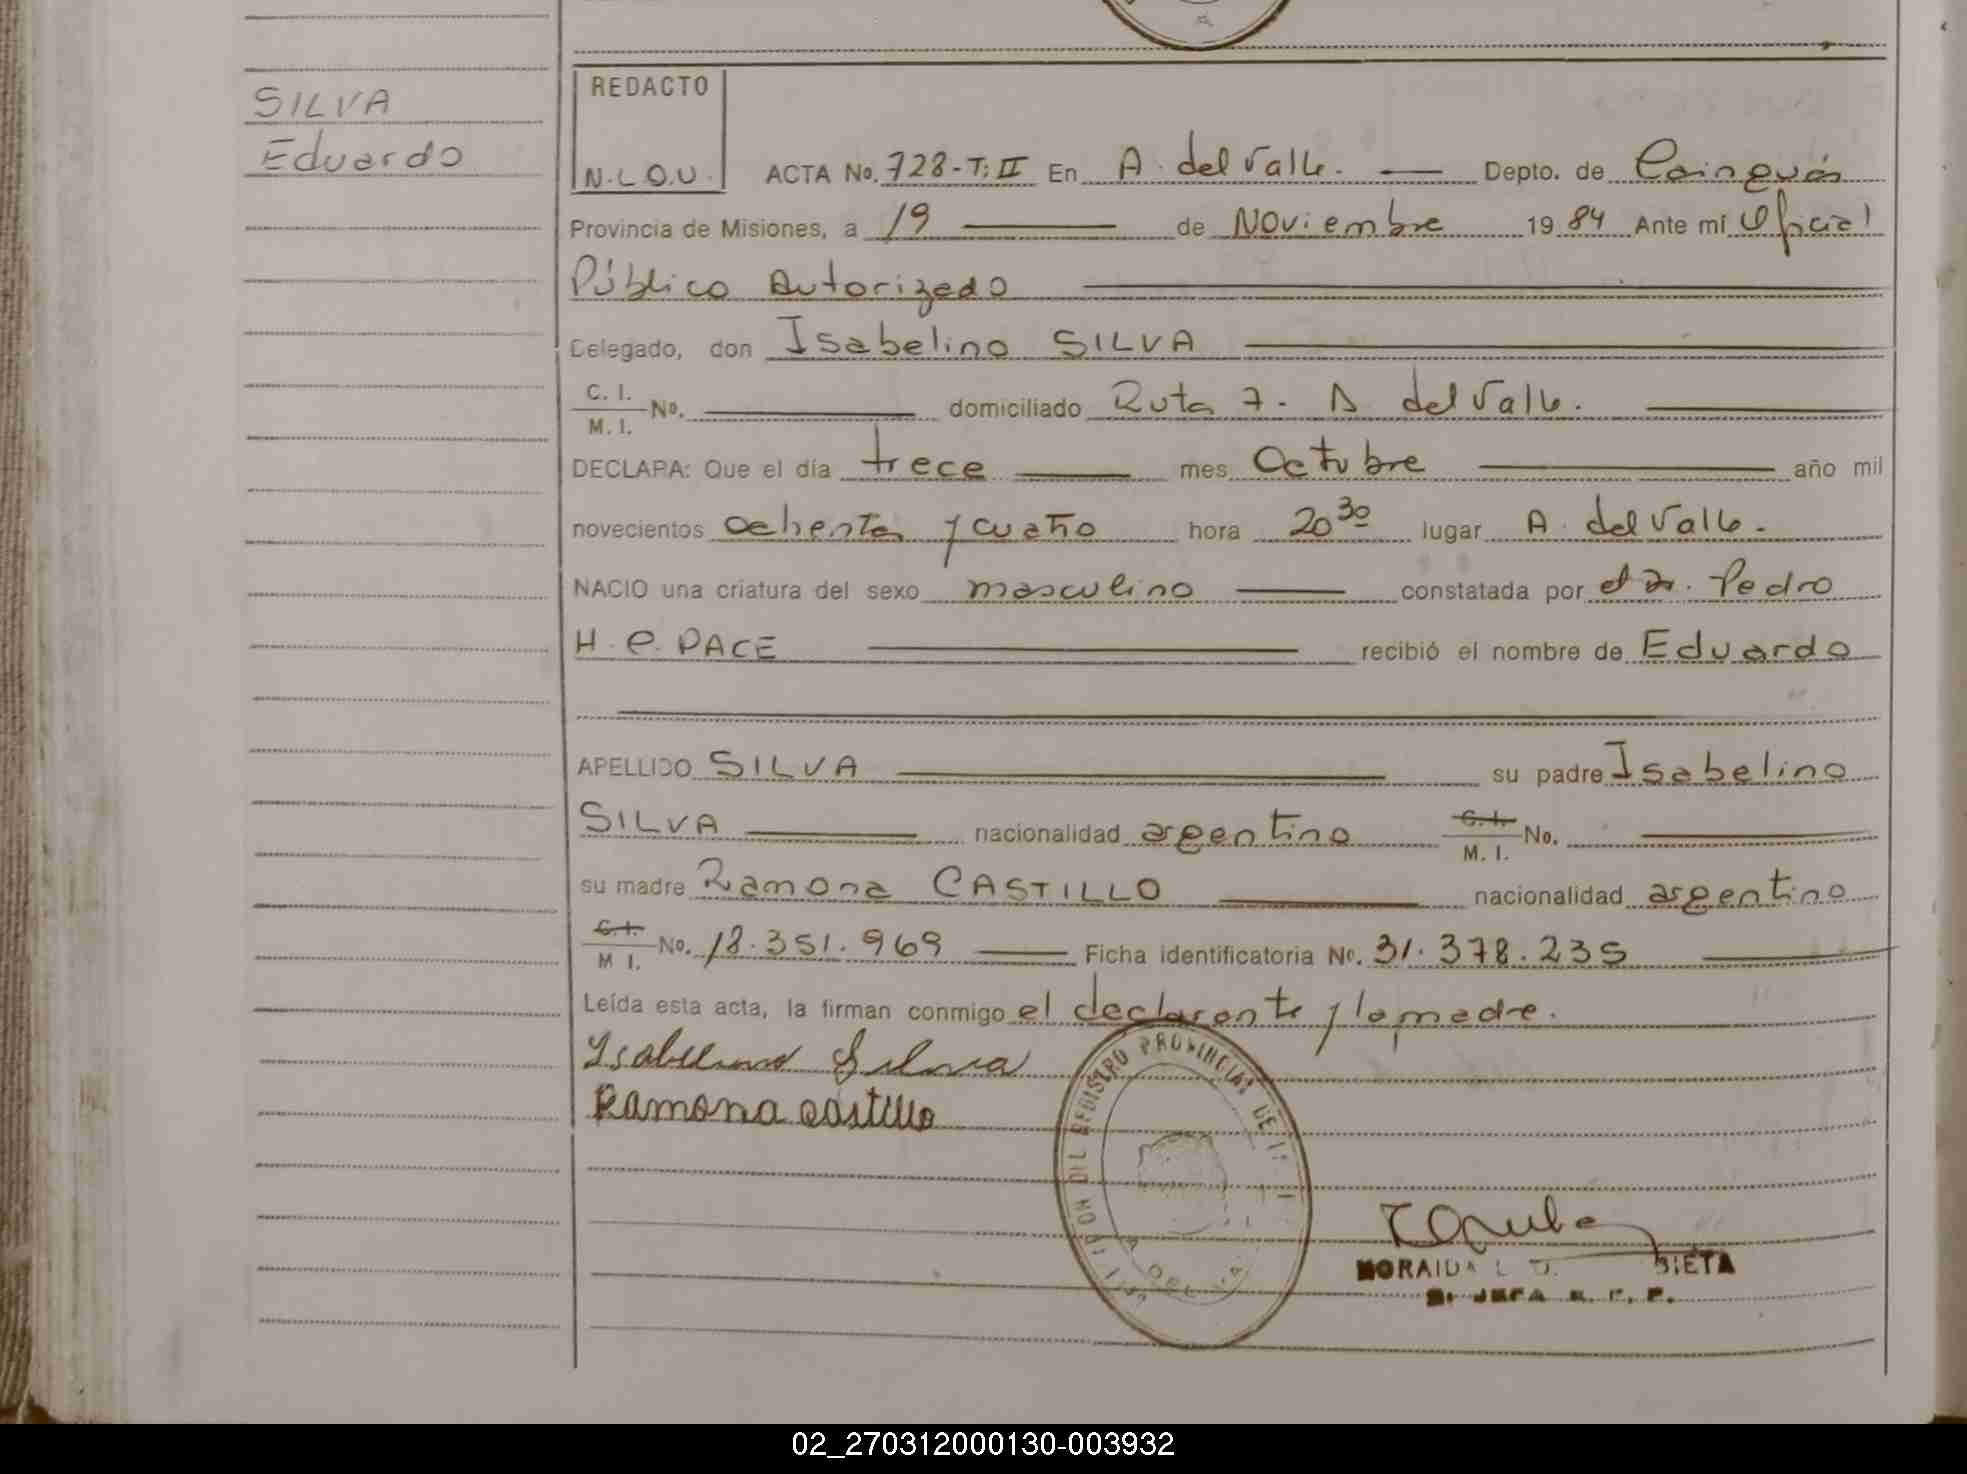 SILVA
Eduardo
REDACTO
N.L.O.U.
ACTA No. 728-T: II En A. del Valle. Depto. de Cainguás
Provincia de Misiones, a 19 de Noviembre 1984 Ante mí Oficial
Público Autorizado
Delegado, don Isabelino SILVA
C. I.
M. I. No. domiciliado Ruta 7. A del Valle.
DECLARA: Que el día trece mes Octubre año mil
novecientos ochenta y cuatro hora 20 30 lugar A. del Valle.
NACIO una criatura del sexo masculino constatada por el Dr. Pedro
H. C. PACE recibió el nombre de Eduardo
APELLIDO SILVA su padre Isabelino
SILVA nacionalidad argentino C. I.
M. I. No.
su madre Ramona CASTILLO nacionalidad argentina
C. I.
M I. No. 18.351.969 Ficha identificatoria No. 31.378.235
Leída esta acta, la firman conmigo el declarante y la madre.
Isabelino Silva
Ramona Castillo
DEL REGISTRO PROVINCIAL DE
A. DEL VA
MORAIDA L
JEFA R. P. P.
02_270312000130-003932